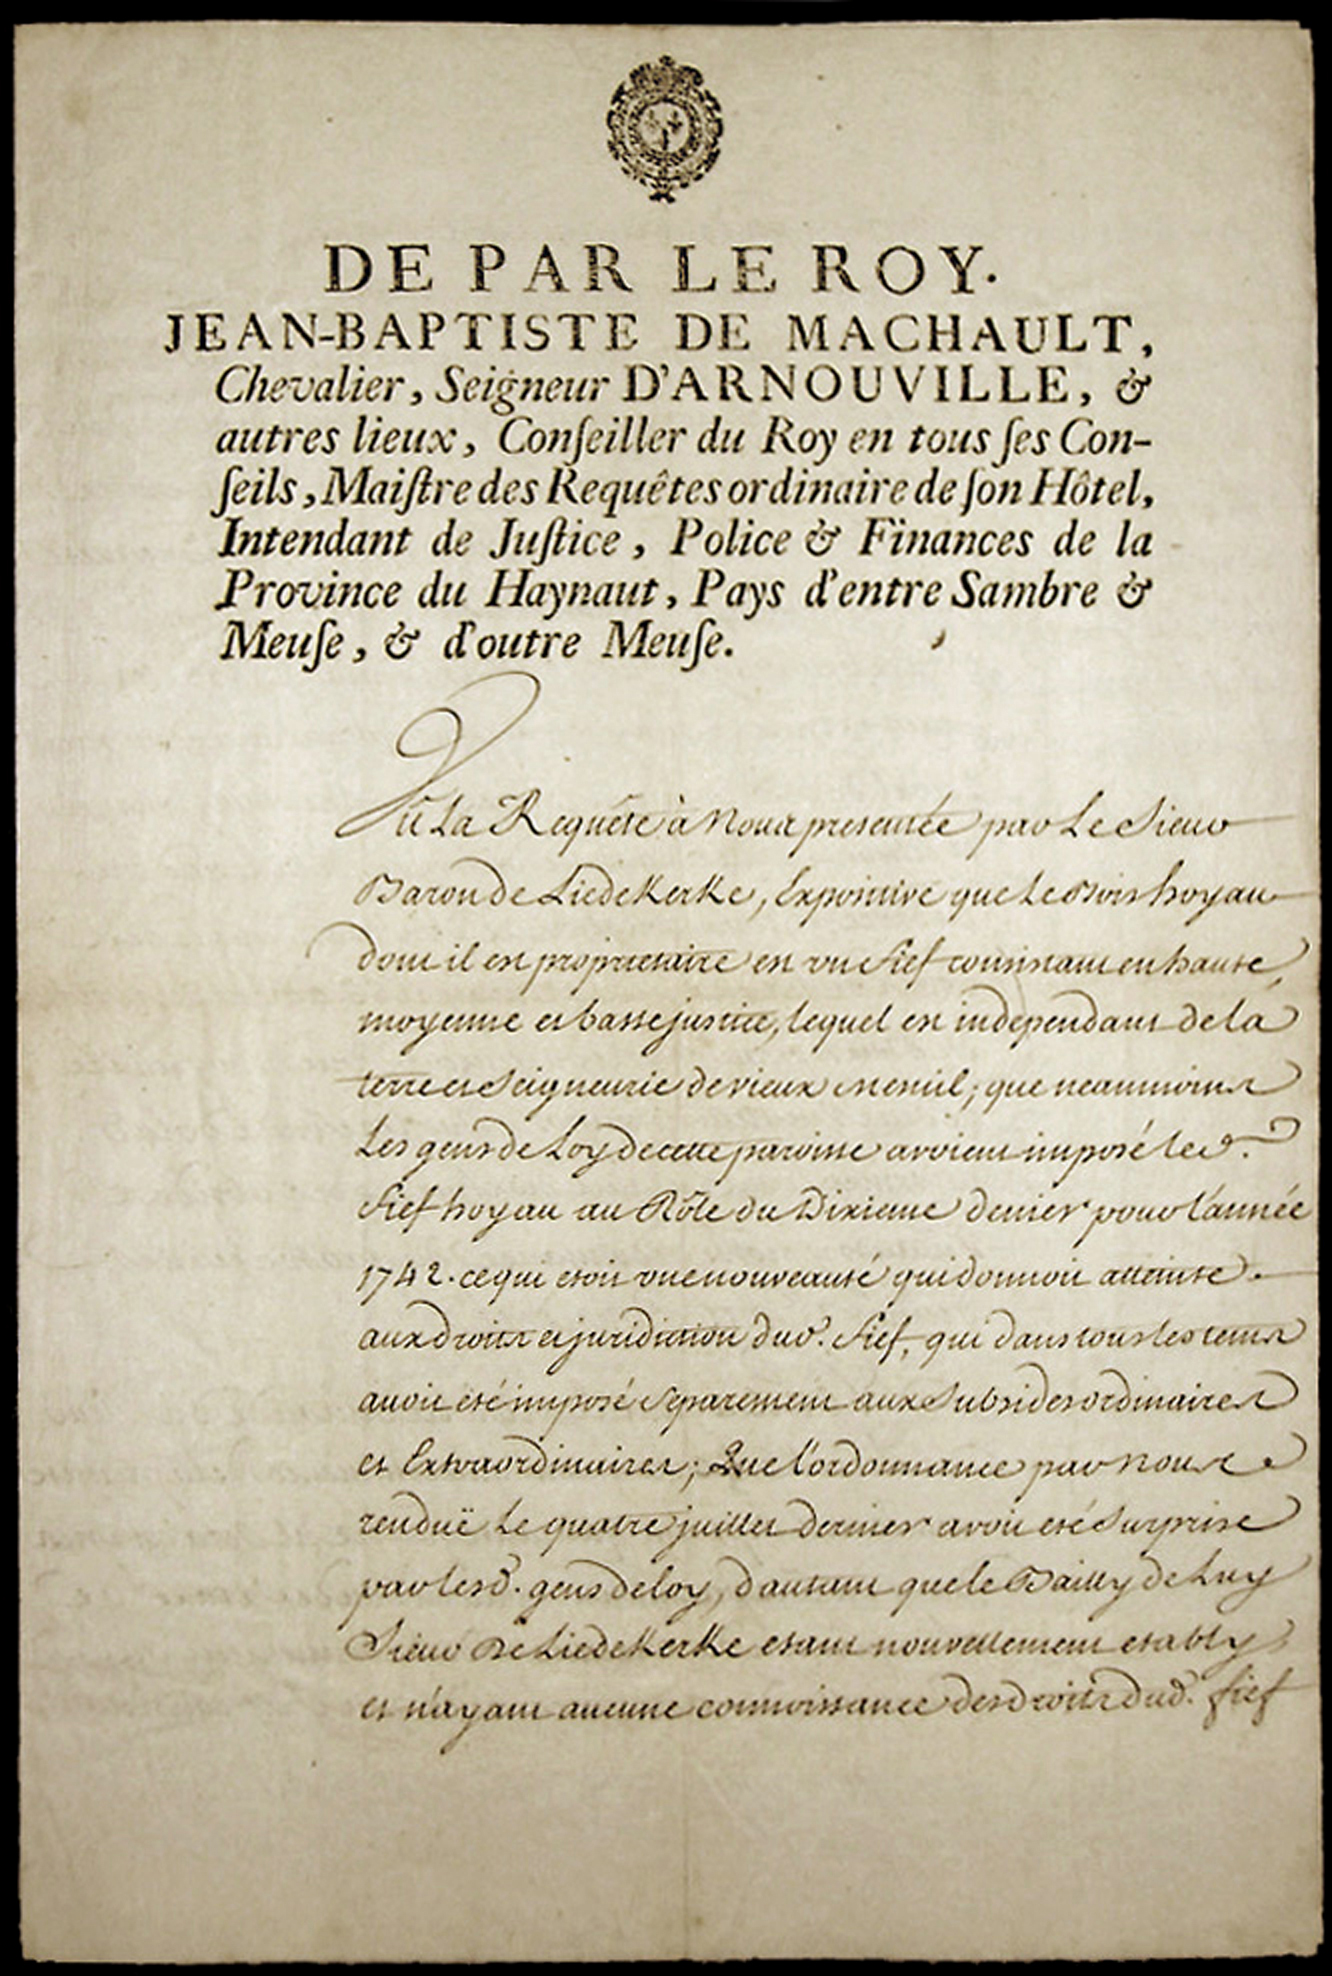 DE PAR LE ROY.
JEAN-BAPTISTE DE MACHAULT,
Chevalier, Seigneur D'ARNOUVILLE, &
autres lieux, Conſeiller du Roy en tous ſes Con-
ſeils, Maiſtre des Requêtes ordinaire de ſon Hôtel,
Intendant de Juſtice, Police & Finances de la
Province du Haynaut, Pays d'entre Sambre &
Meuſe, & d'outre Meuſe.
Vû La Requête à Nous presentée par Le Sieur
Baron de Liedekerke, Expositive que Le Bois hoyau
dont il est proprietaire est un fief consistant en haute,
moyenne et basse justice, lequel est independant de la
terre et Seigneurie de vieux Mesnil; que neanmoins
Les gens de Loy de cette paroisse avoient imposé led.
fief hoyau au Rôle du Dixieme denier pour l'année
1742. ce qui etoit une nouveauté qui donnoit atteinte
aux droits et juridiction dud. fief, qui dans tous les tems
avoit eté imposé separement aux Subsides ordinaires
et Extraordinaires; Que l'ordonnance par nous
renduë Le quatre juillet dernier avoit eté Surprise
par lesd. gens de loy, d'autant que le Bailly de Luy
Sieur De Liedekerke etant nouvellement etably
et n'ayant aucune connoissance des droits dud. fief